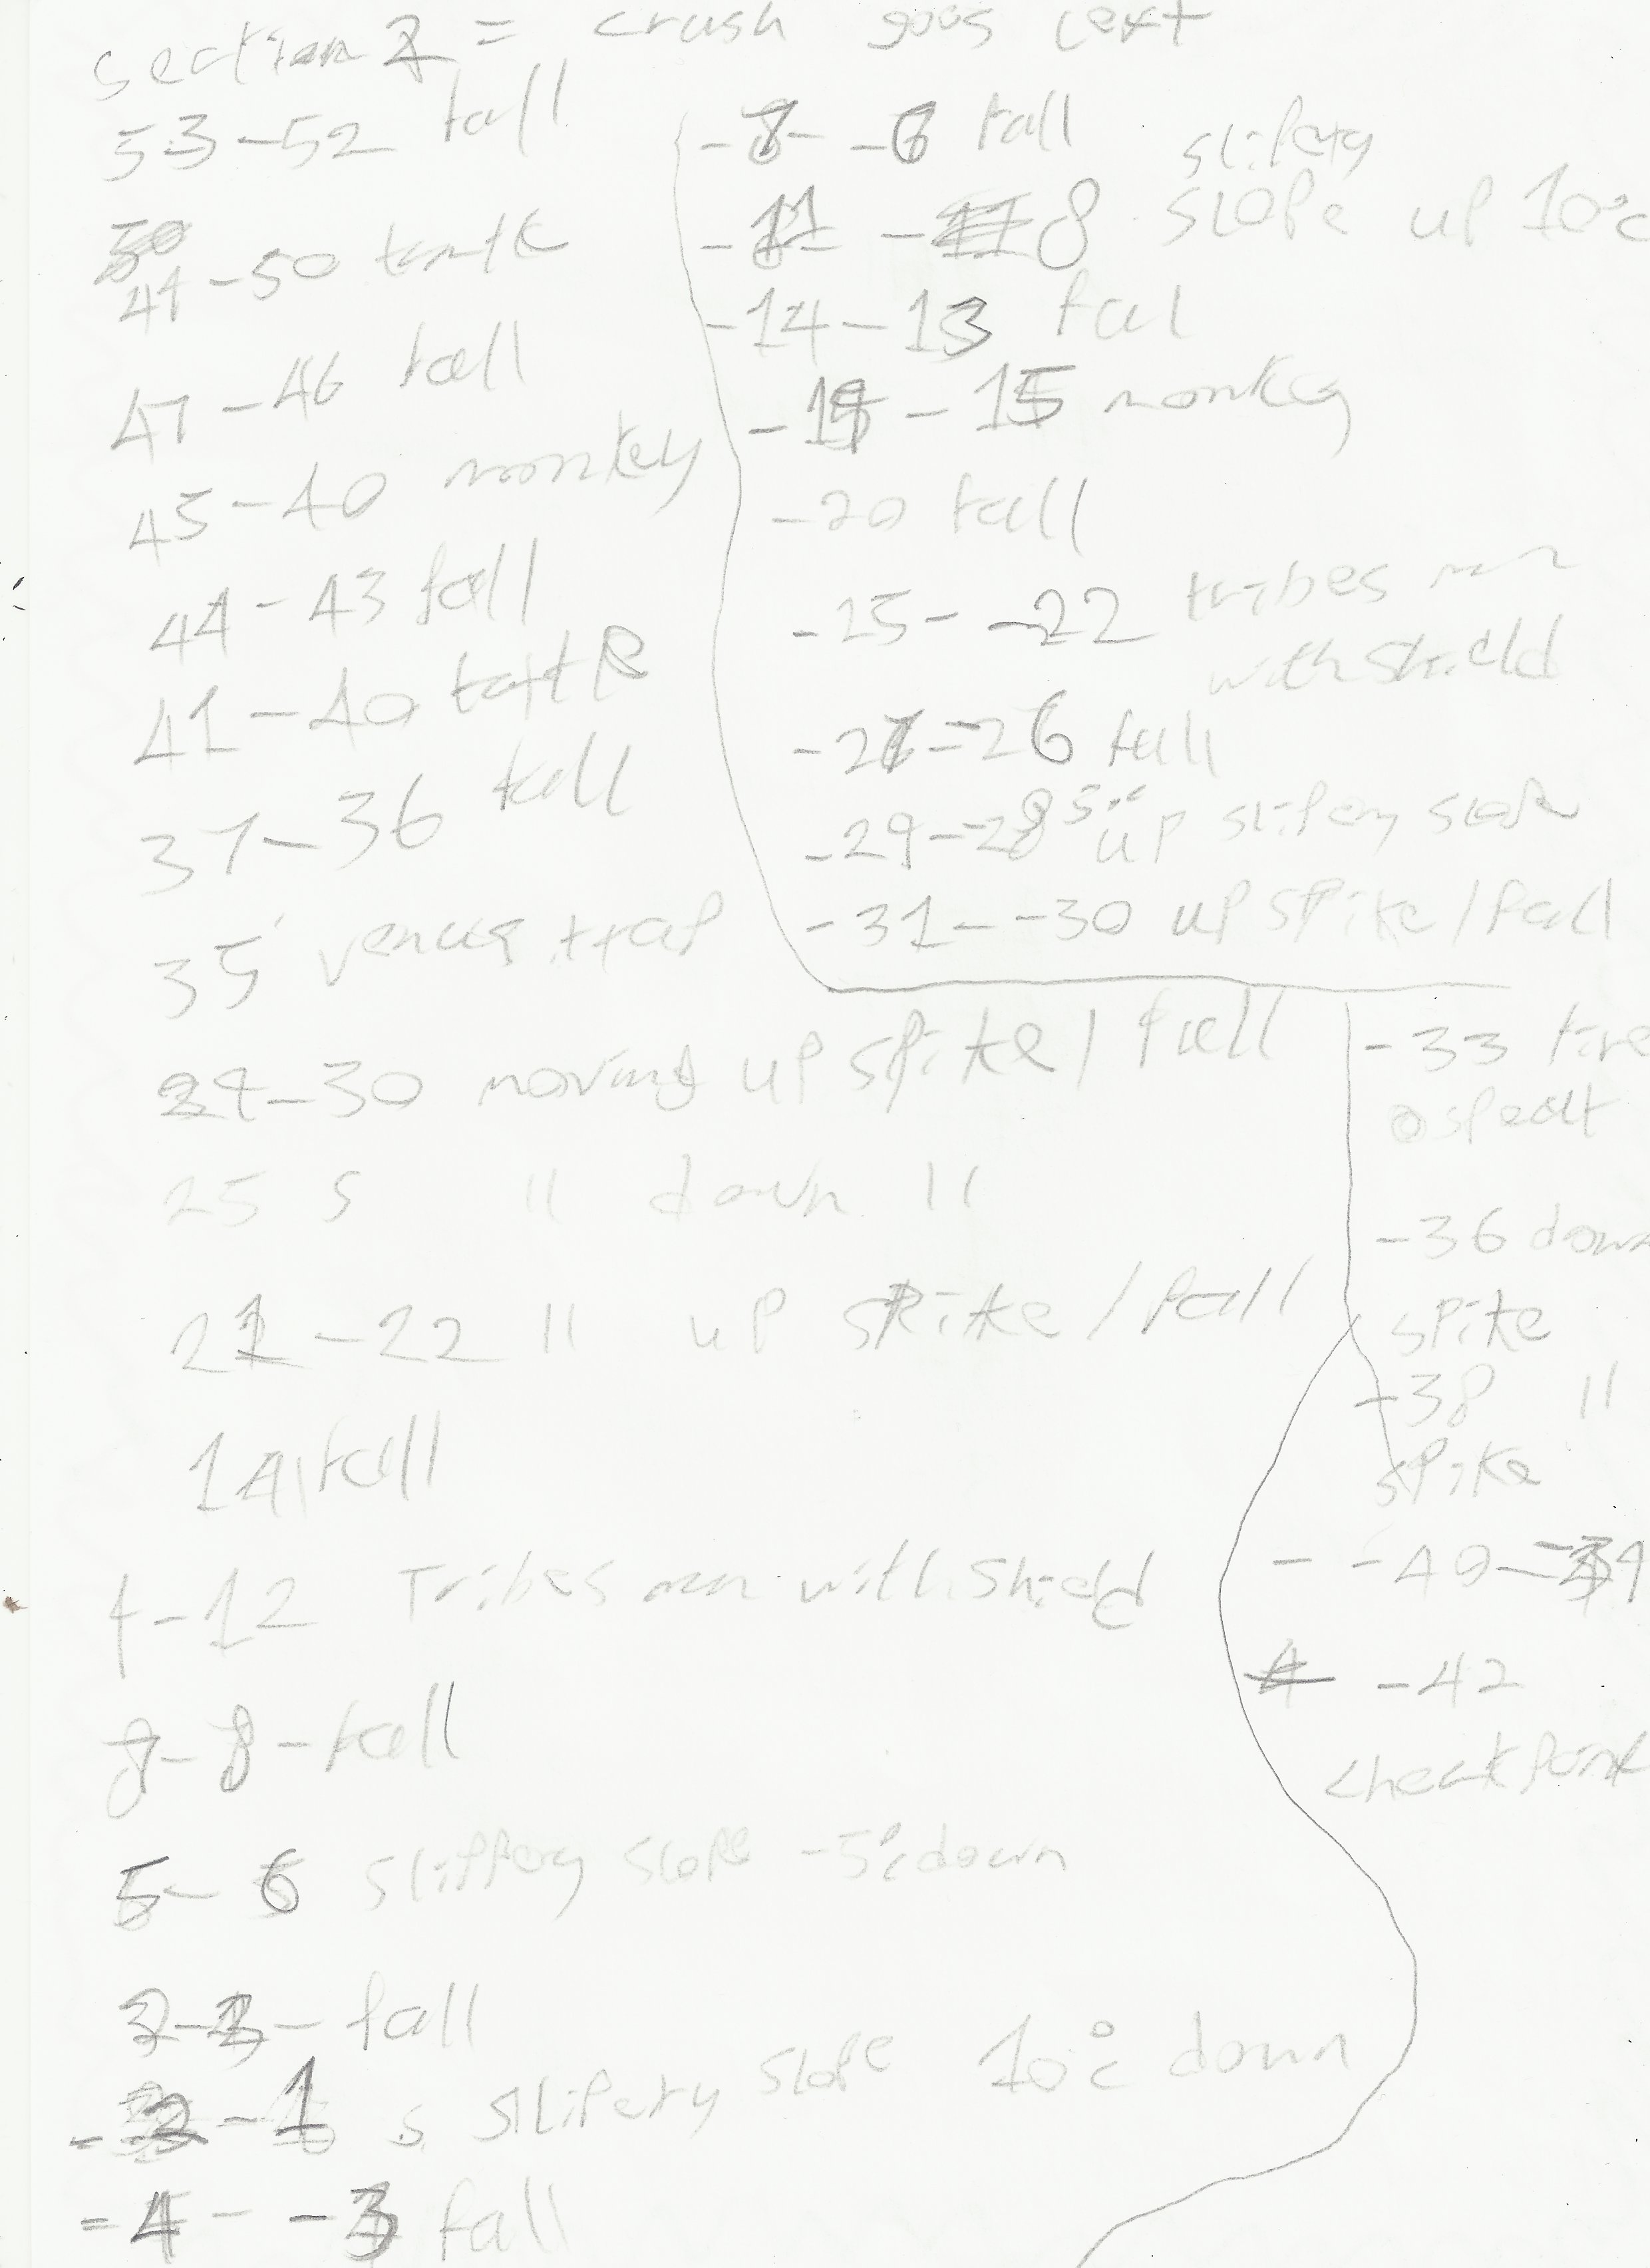 section 2 = crush goes left
53-52 fall
49-50 turtle
47-46 fall
45-40 monkey
44-43 fall
41-40 turtle
37-36 fall
35 venus trap
29-30 moving up spike/fall
25 s 11 down 11
21-22 11 up spike/fall
14 fall
1-12 Tribes man with shield
7-8-fall
5-6 slippery slope -5° down
2-3-fall
-2-1 s slipery slope 10°c down
-4--3 fall
-7- -6 fall
-11 - 8 slipery slope up 10°c
-14-13 fal
-19-15 monkey
-20 fall
-25- -22 tribes man
with shield
-27-26 fall
-29--28 5°c up slipery slope
-31--30 up spike/fall
-33 fire
-36 down
spike
-38 11
spike
- -40-39
-42
checkpoint